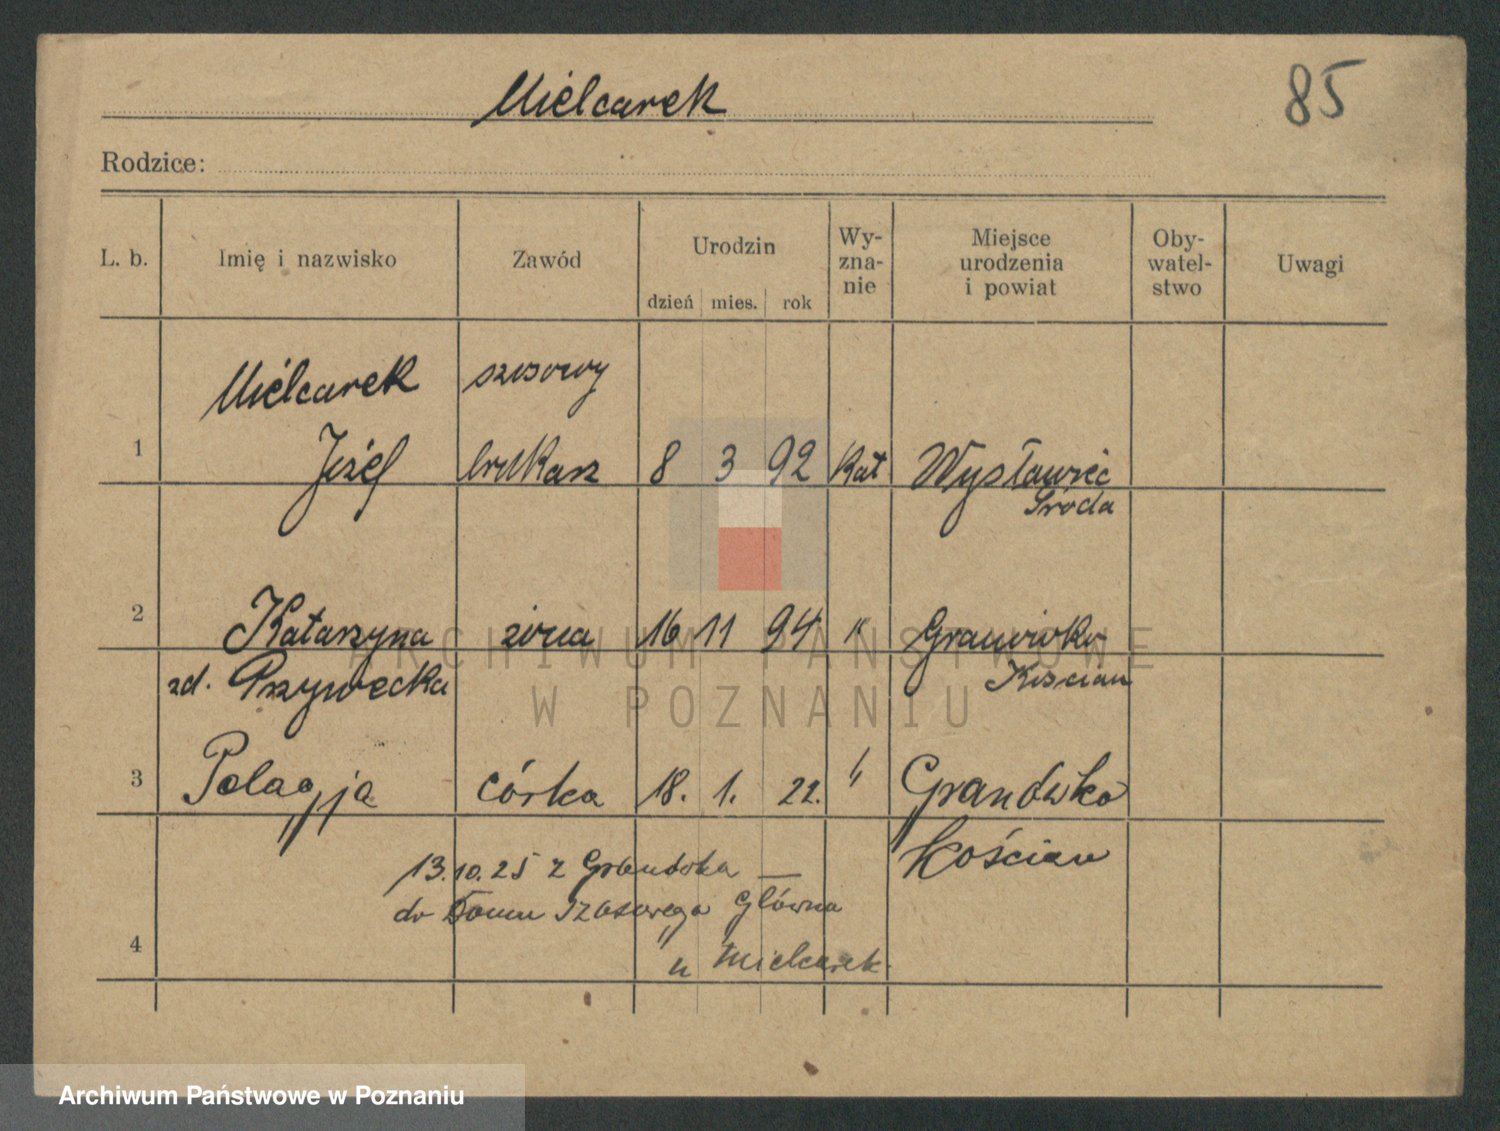 Mielcarek
85
Rodzice:
L. b. Imię i nazwisko Zawód Urodzin Wy-zna-nie Miejsce urodzenia i powiat Oby-watel-stwo Uwagi
dzień mies. rok
Mielcarek szosowy
1 Józef brukarz 8 3 92 Kat
Środa
2 Katarzyna żona 16 11 94 "
zd. Przywecka Kościan
3 Pelagja córka 18. 1. 22. " Granówko
Kościan
13.10.25 z Granówka —
do Domu Szosowego Główna
4 u Mielcarek
ARCHIWUM PAŃSTWOWE
W POZNANIU
Archiwum Państwowe w Poznaniu